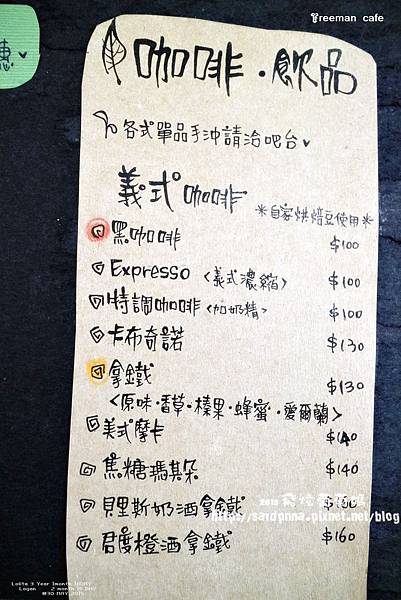 Treeman cafe
惠
咖啡·飲品
各式單品手沖請洽吧台
義式咖啡
＊自家烘焙豆使用＊
黑咖啡 $100
Expresso <義式濃縮> $100
特調咖啡 <加奶精> $100
卡布奇諾 $130
拿鐵 $130
<原味·香草·榛果·蜂蜜·愛爾蘭>
美式摩卡 $140
焦糖瑪其朵 $140
貝里斯奶酒拿鐵 $160
君度橙酒拿鐵 $160
2015
http://sardonna.pixnet.net/blog
Lolita 3 Year 1month
Logan 2 month
@30 MAY 2015